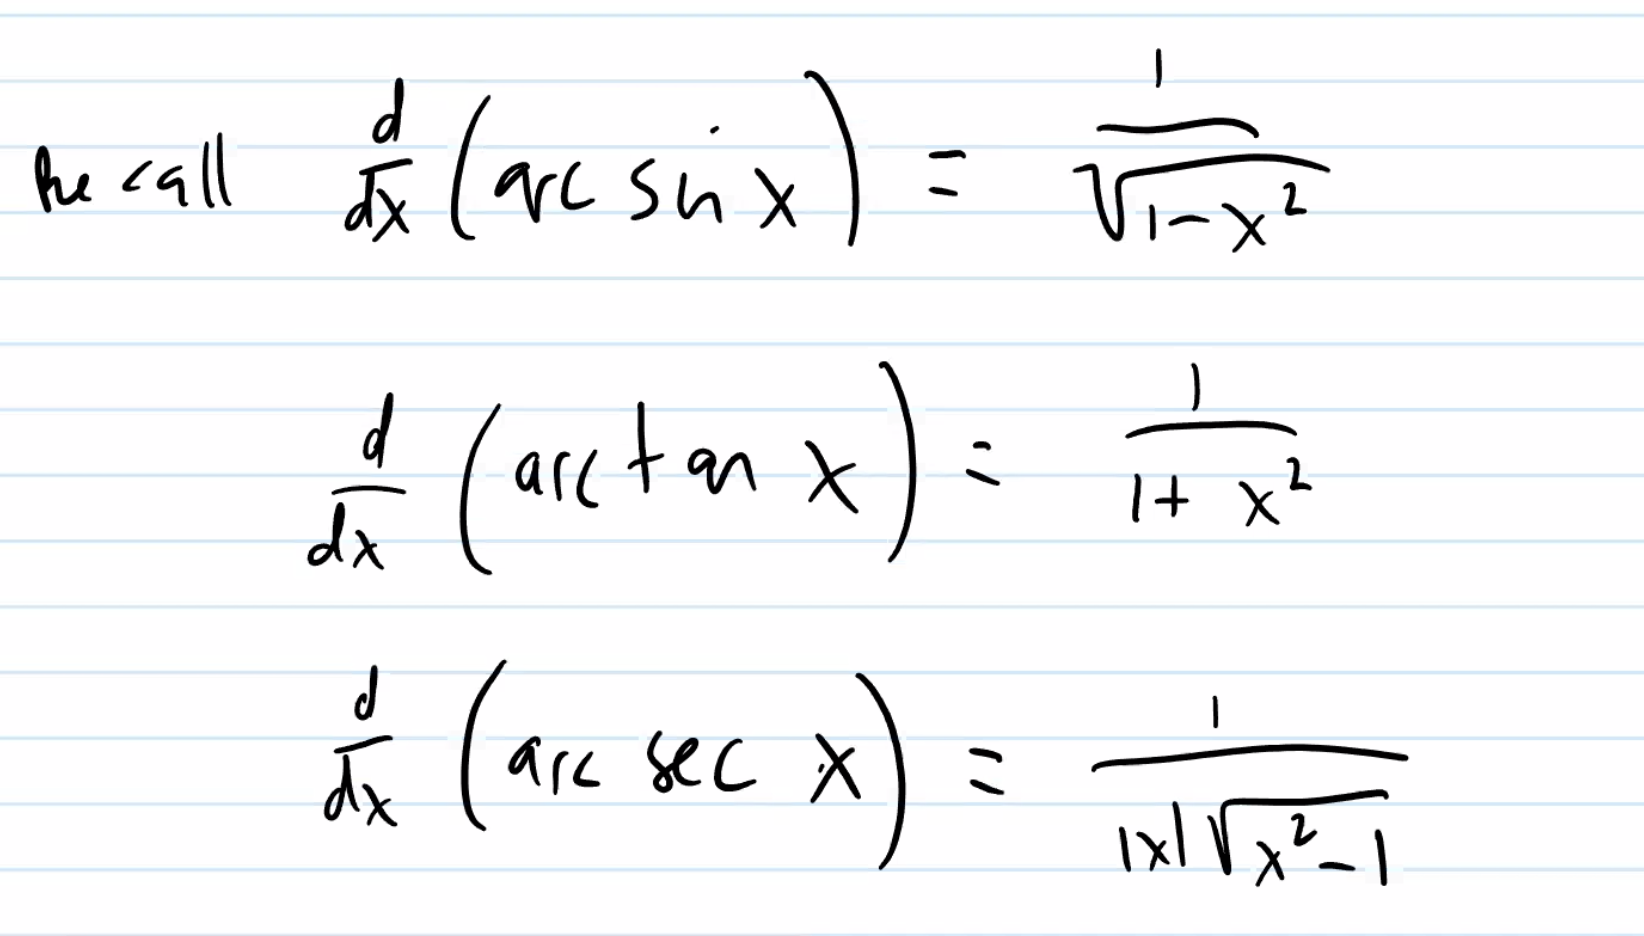 Recall d/dx (arc sin x) = 1/√(1-x²)
d/dx (arc tan x) = 1/(1+x²)
d/dx (arc sec x) = 1/(|x|√(x²-1))